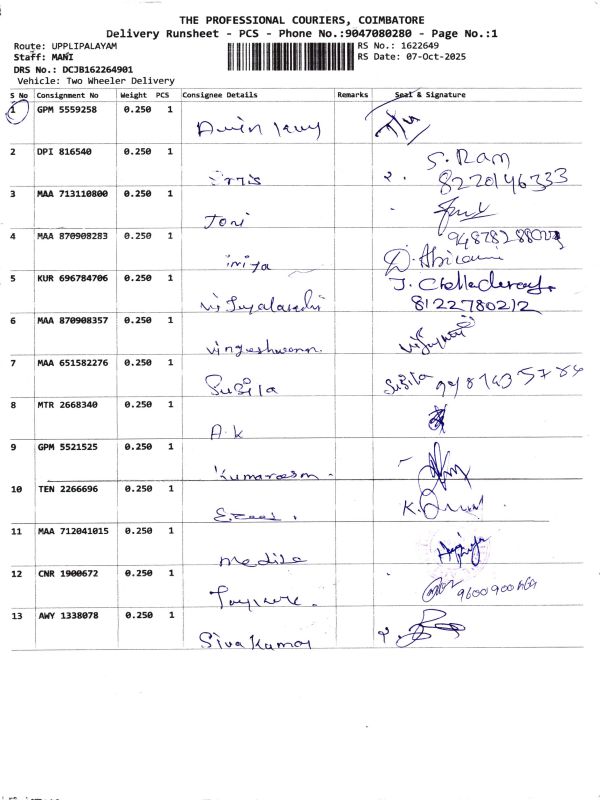 THE PROFESSIONAL COURIERS, COIMBATORE
Delivery Runsheet - PCS - Phone No.:9047080280 - Page No.:1
Route: UPPLIPALAYAM RS No.: 1622649
Staff: MANI RS Date: 07-Oct-2025
DRS No.: DCJB162264901
Vehicle: Two Wheeler Delivery
S No Consignment No Weight PCS Consignee Details Remarks Seal & Signature
1 GPM 5559258 0.250 1
2 DPI 816540 0.250 1 S. Ram
8220146333
3 MAA 713110800 0.250 1
Joni
4 MAA 870908283 0.250 1
D. Abirami
5 KUR 696784706 0.250 1
8122780212
6 MAA 870908357 0.250 1
7 MAA 651582276 0.250 1
Susila Susila
8 MTR 2668340 0.250 1
A.K
9 GPM 5521525 0.250 1
10 TEN 2266696 0.250 1
11 MAA 712041015 0.250 1
12 CNR 1900672 0.250 1
13 AWY 1338078 0.250 1
Siva Kumar